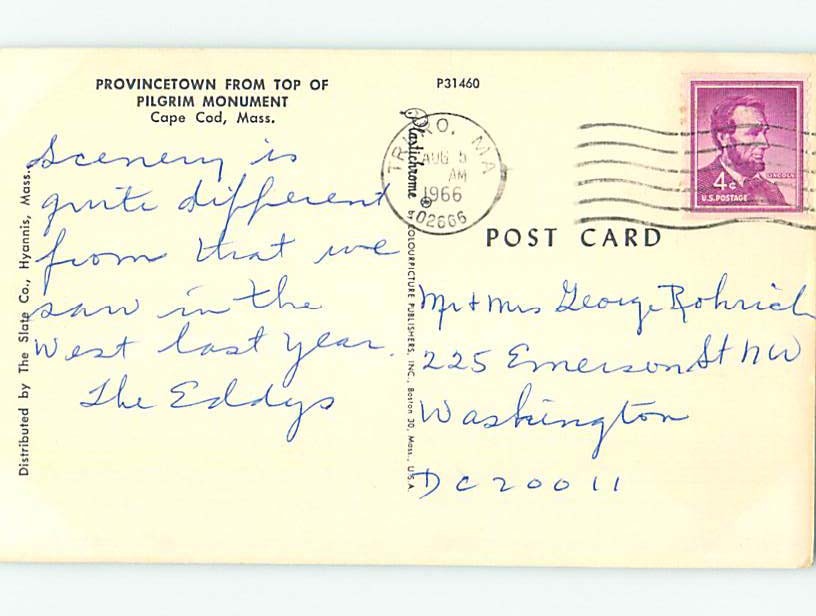 PROVINCETOWN FROM TOP OF
PILGRIM MONUMENT
Cape Cod, Mass.
Scenery is
quite different
from that we
saw in the
West last year.
The Eddys
Distributed by The Slate Co., Hyannis, Mass.
P31460
Plastichrome ®
BY COLOURPICTURE PUBLISHERS, INC., Boston 30, Mass., U.S.A.
MA
AUG 5
AM
1966
02666
LINCOLN
4¢
U.S. POSTAGE
POST CARD
Mr + Mrs George Rohrich
225 Emerson St NW
Washington
DC 20011